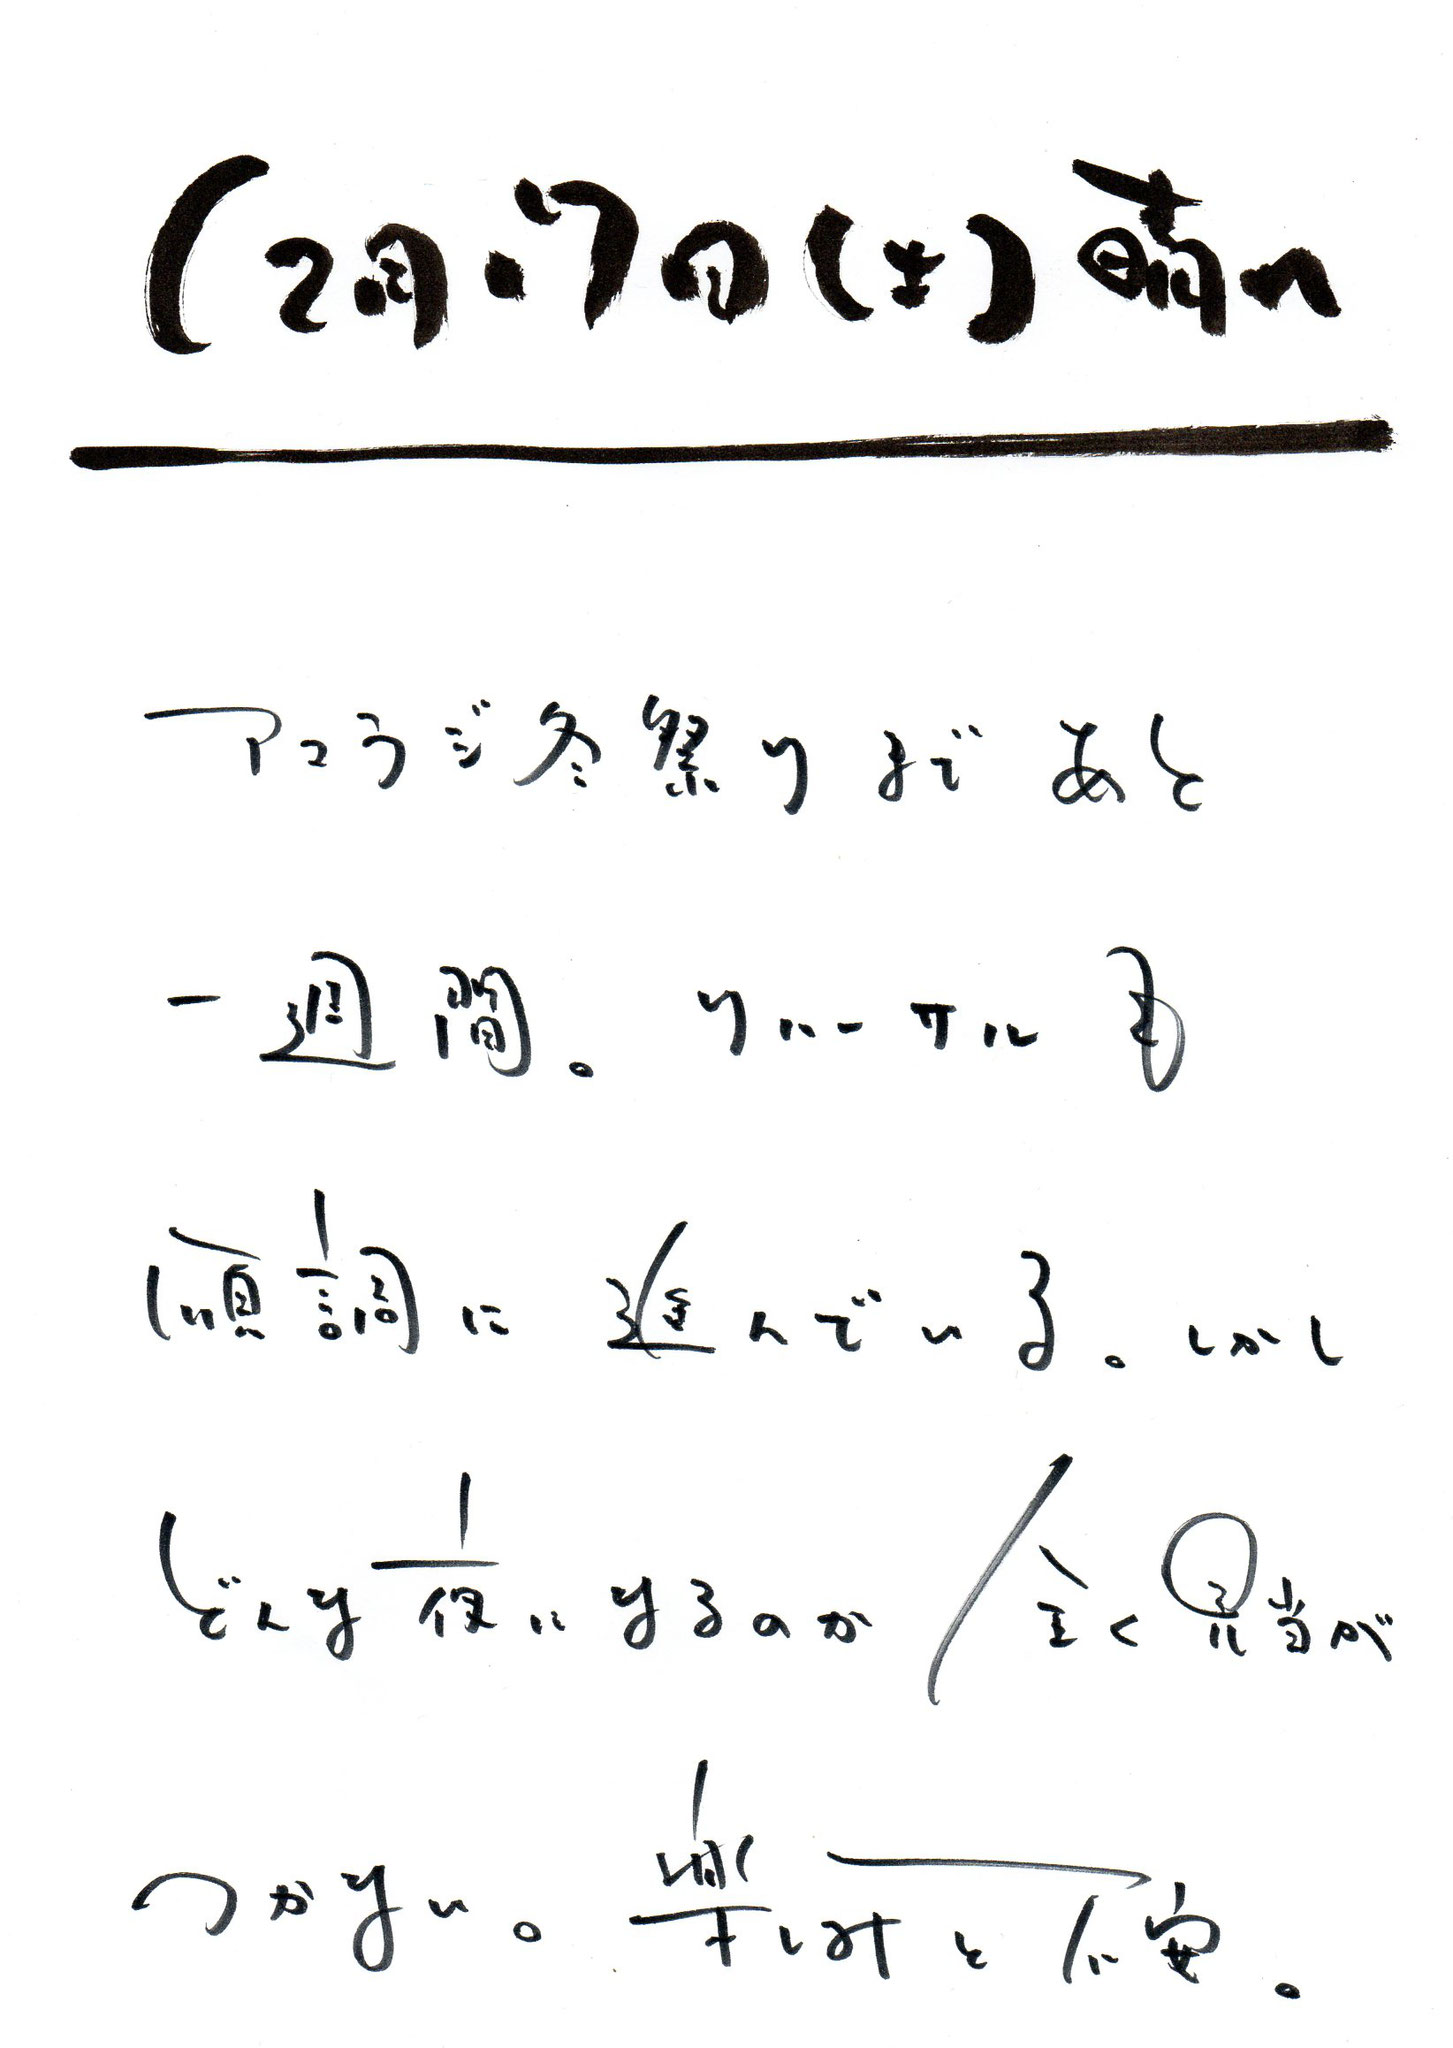 (2月.7日(土)晴れ
アコラジ冬祭りまであと
一週間。リハーサルも
順調に進んでいる。しかし
どんな夜になるのか全く見当が
つかない。楽しみと不安。